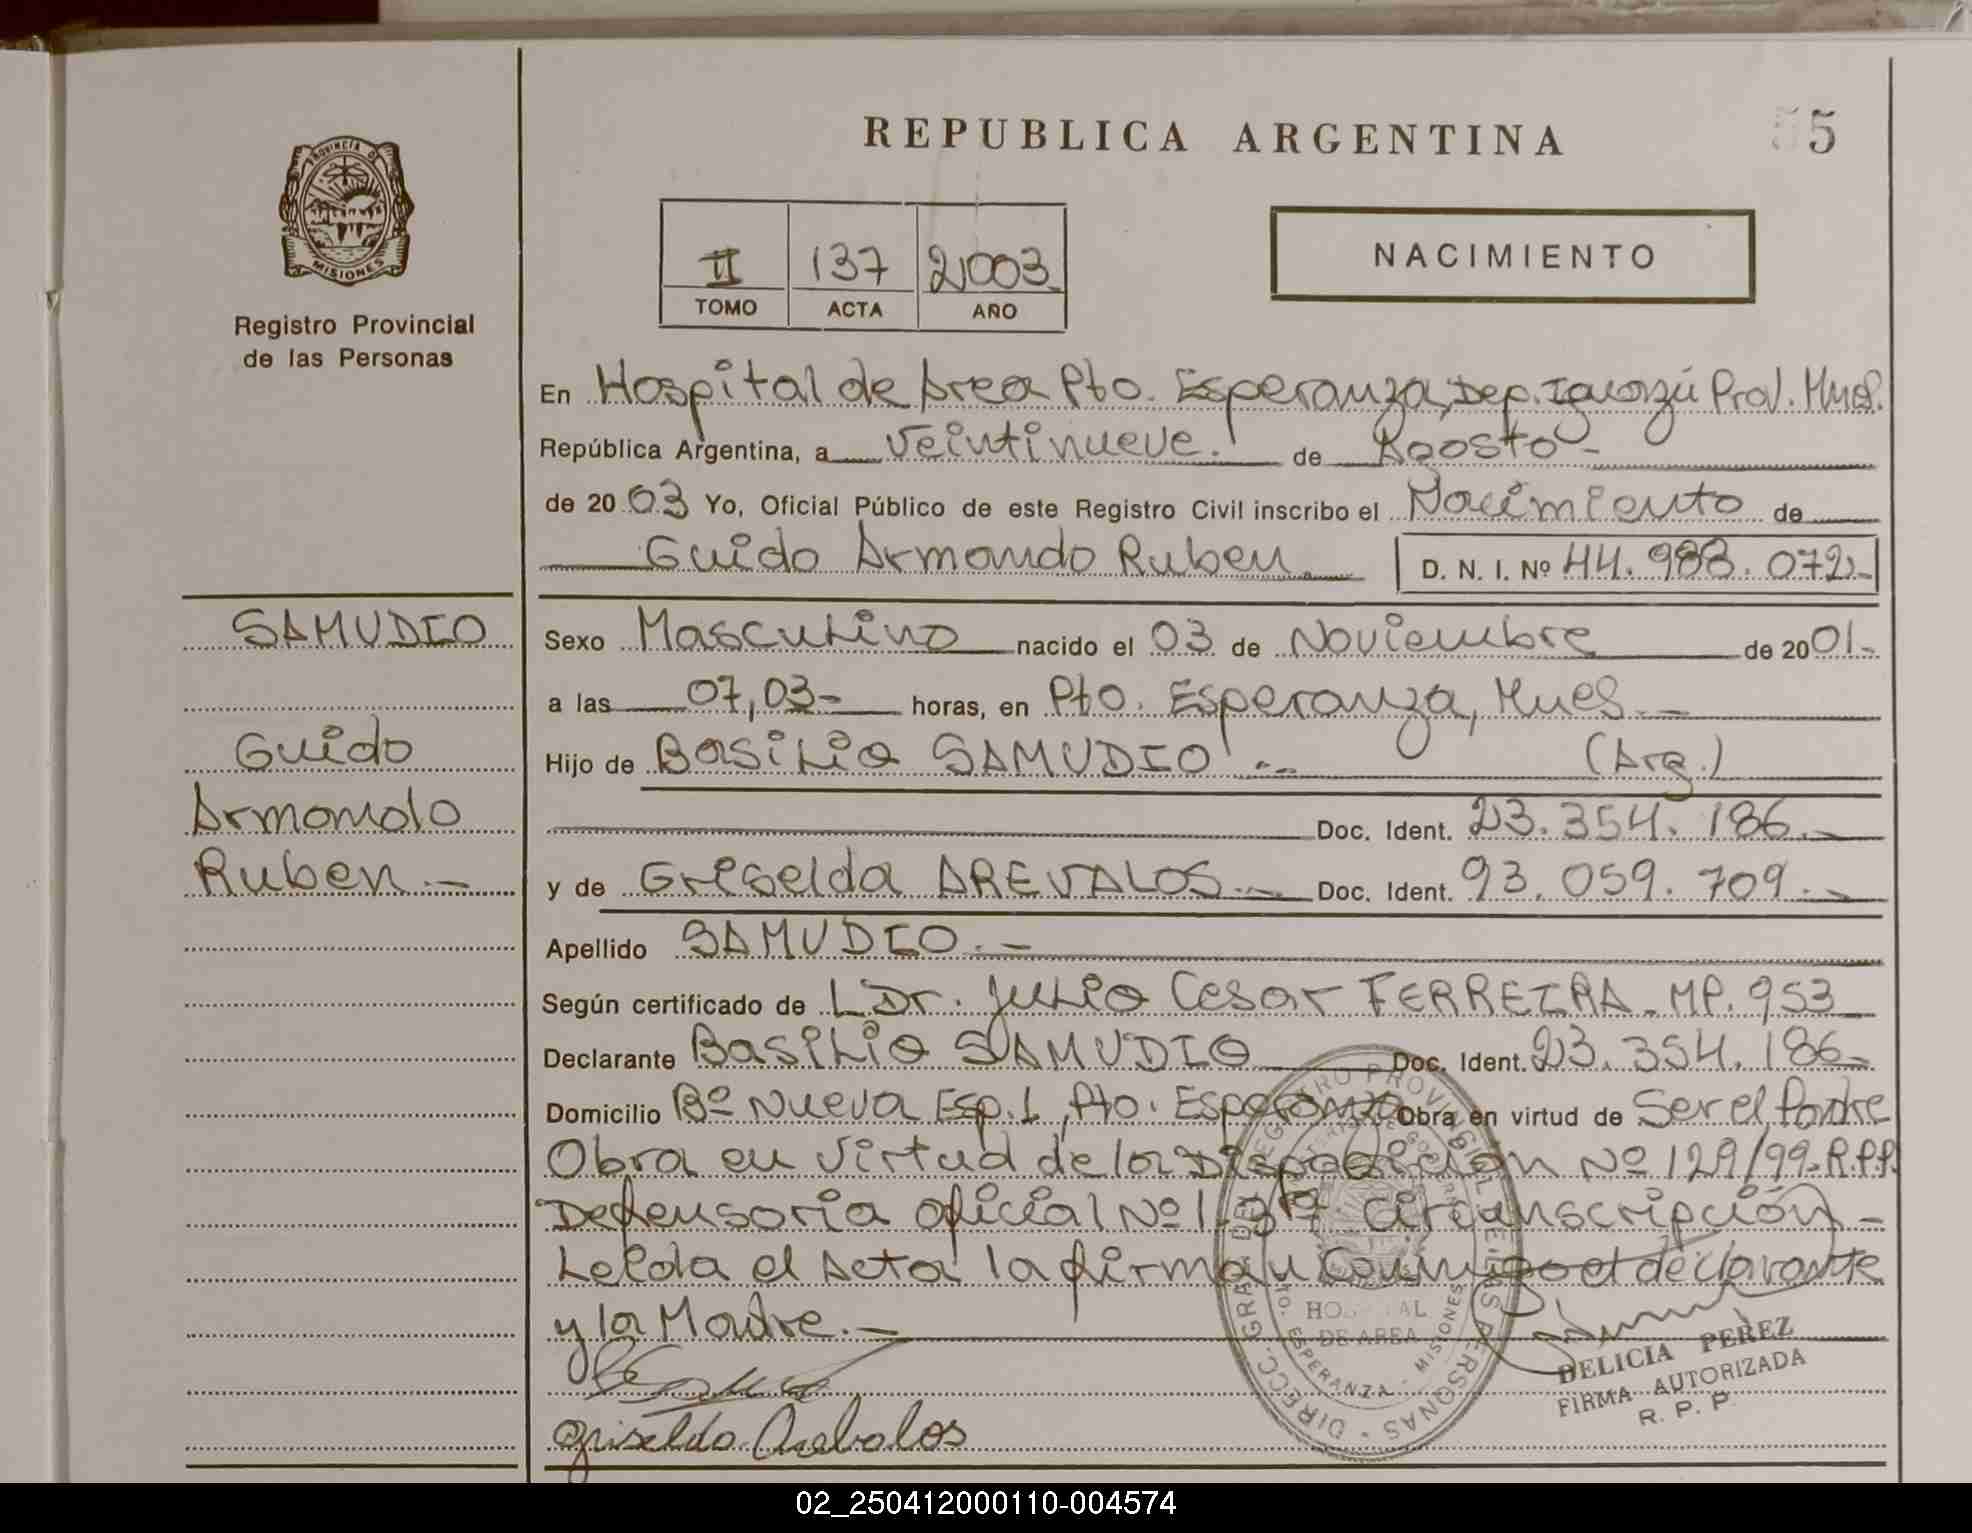 REPUBLICA ARGENTINA
55
PROVINCIA DE
MISIONES
Registro Provincial
de las Personas
II 137 2003
TOMO ACTA AÑO
NACIMIENTO
En Hospital de Area Pto. Esperanza, Dep. Iguazú Prov. Mnes.
República Argentina, a veintinueve. de Agosto -
de 2003 Yo, Oficial Público de este Registro Civil inscribo el Nacimiento de
Guido Armando Ruben D. N. I. Nº 44.988.072-
SAMUDIO
Guido
Armando
Ruben.-
Sexo Masculino nacido el 03 de Noviembre de 2001-
a las 07,03- horas, en Pto. Esperanza, Mnes.-
Hijo de Basilio SAMUDIO.- (Arg.)
Doc. Ident. 23.354.186.-
y de Griselda AREVALOS.- Doc. Ident. 93.059.709.-
Apellido SAMUDIO.-
Según certificado de Dr. Julio Cesar FERREIRA. MP. 953
Declarante Basilio SAMUDIO Doc. Ident. 23.354.186-
Domicilio Bº Nueva Esp.1, Pto. Esperanza Obra en virtud de Ser el Padre
Obra en virtud de la Disposición Nº 129/99-R.P.P.
Defensoria oficial Nº 1-3ra circunscripción-
Leida el Acta la firman conmigo el declarante
y la Madre.-
Griselda Arebalos
DELICIA PEREZ
FIRMA AUTORIZADA
R. P. P.
DIRECC. GRAL. DEL REGISTRO PROVINCIAL DE LAS PERSONAS
HOSPITAL
DE AREA
ESPERANZA - MISIONES
02_250412000110-004574